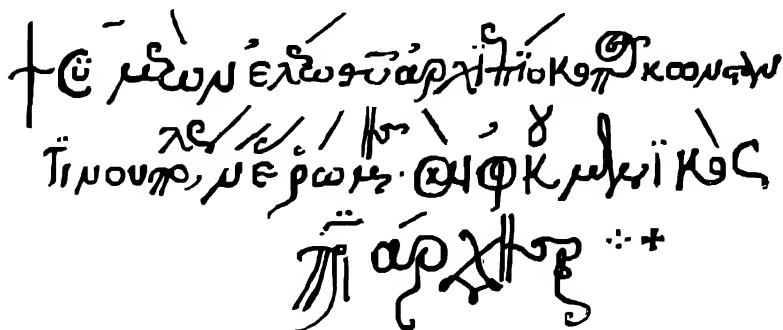 † Cϋμεὼν ἐλέω θῡ ἀρχϊεπΐσκοπος κωνσταν
τϊνουπόλεως, νέας ῥώμης· καὶ οἰκουμενϊκὸς
πατρϊάρχης ⁘ +